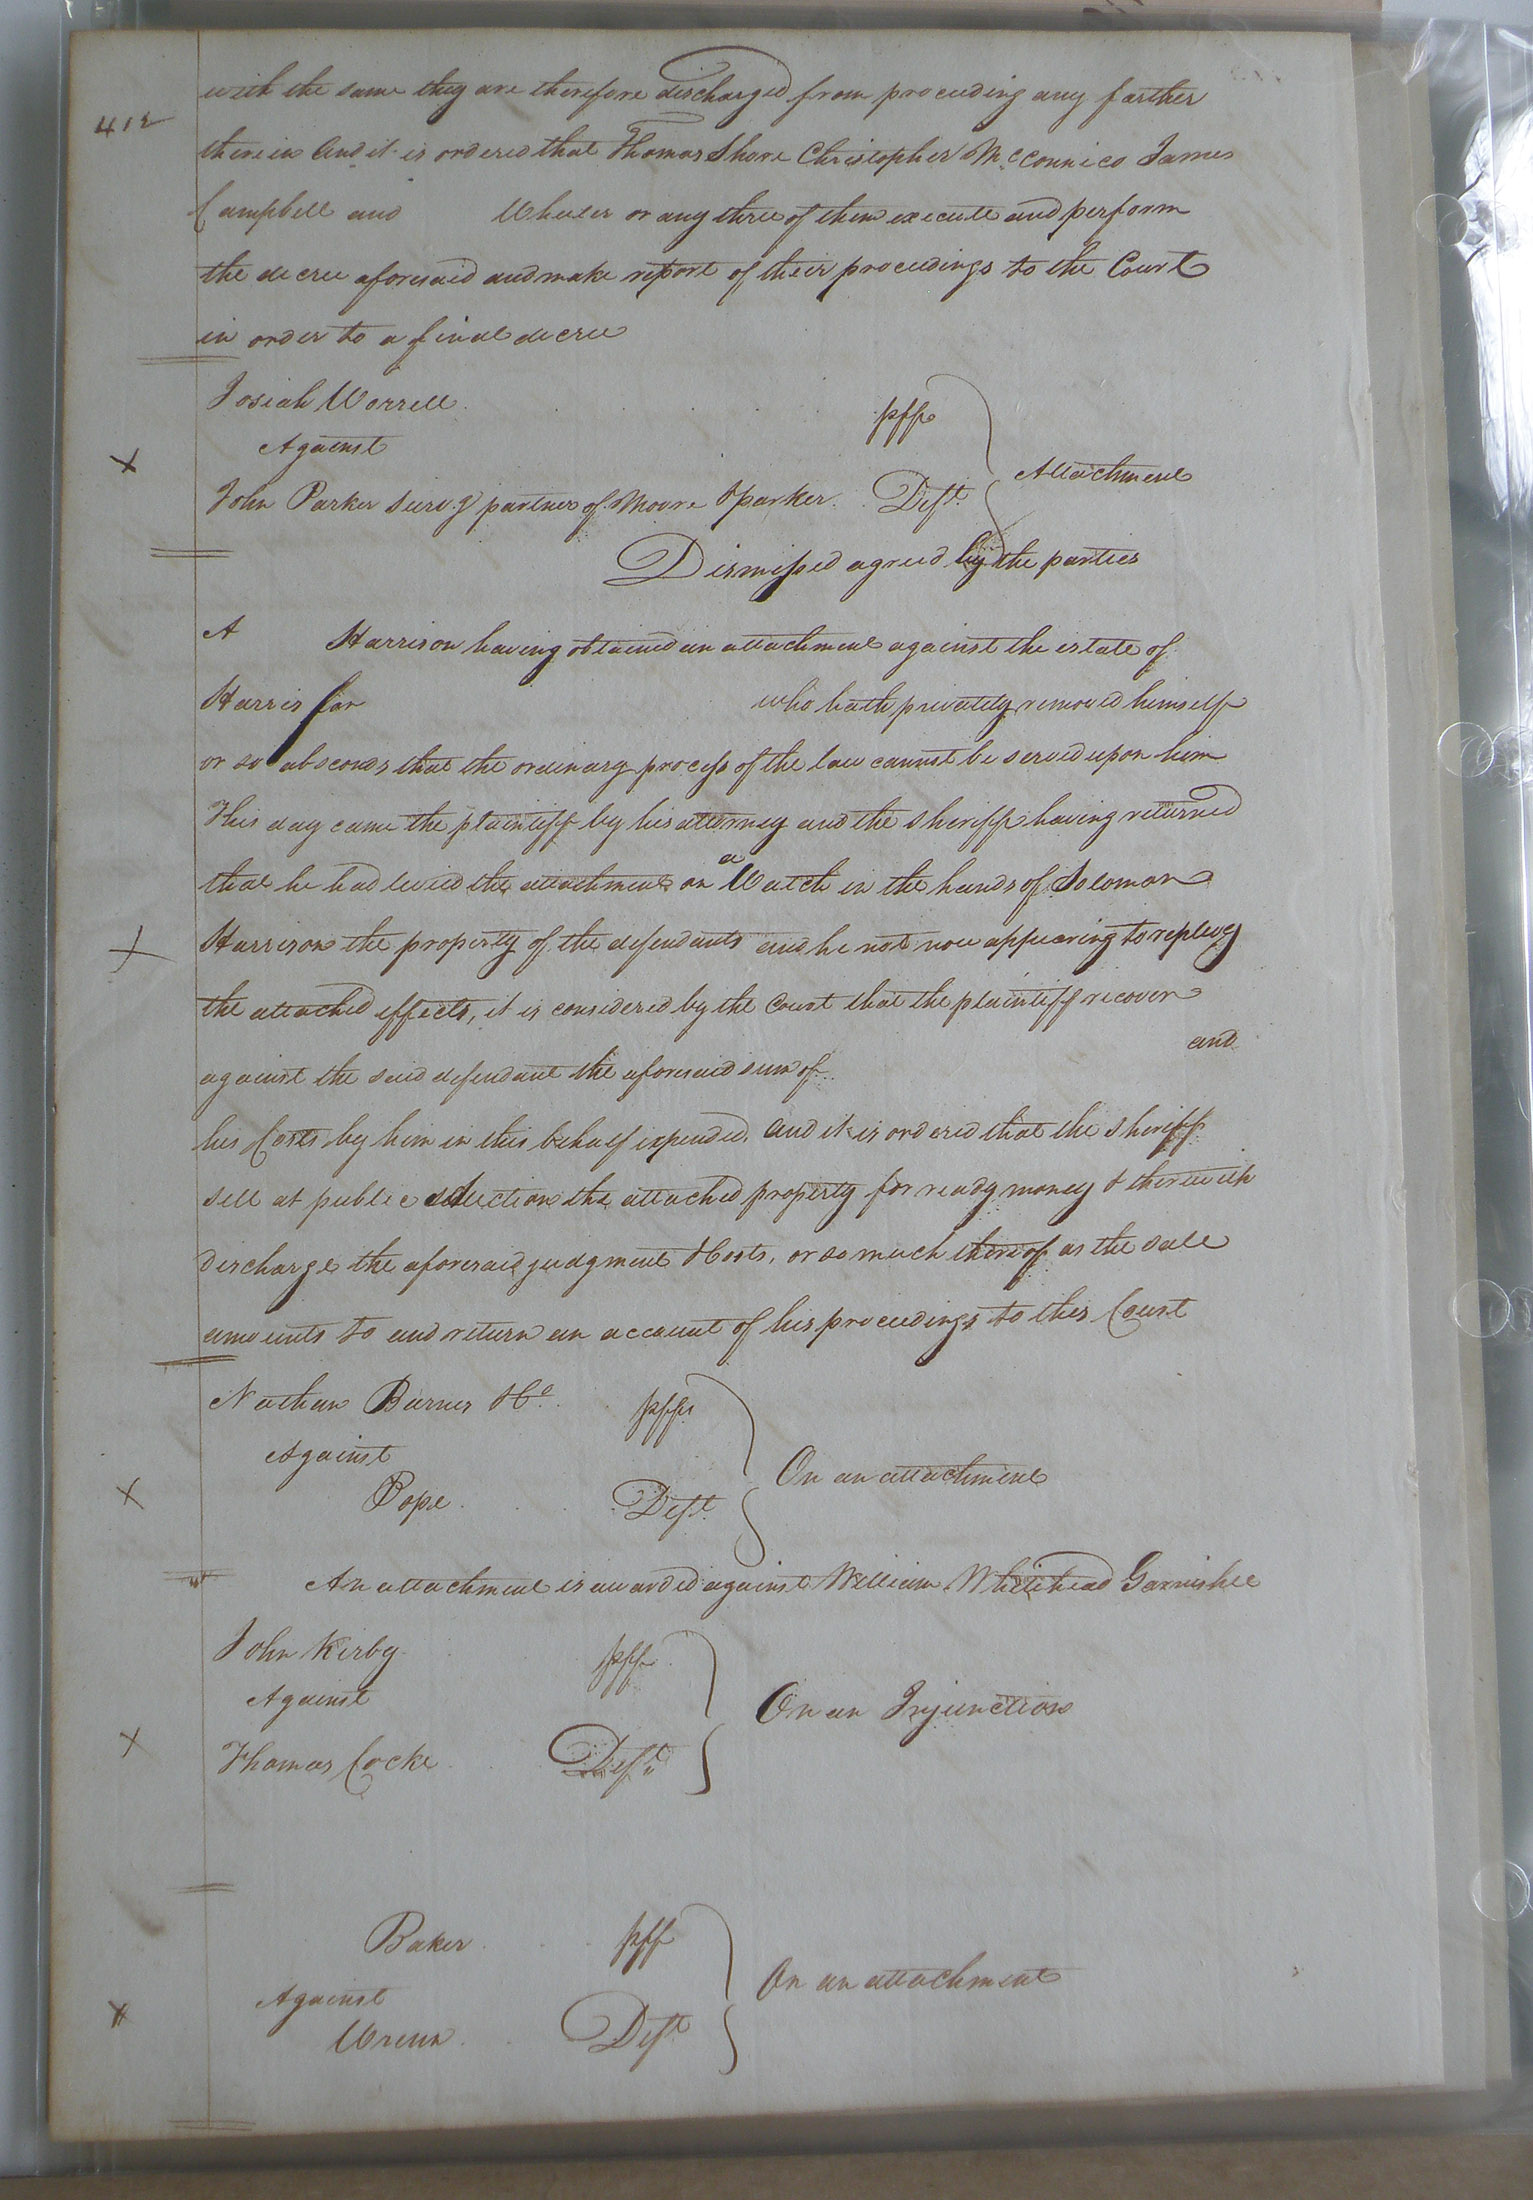 412
with the same they are therefore discharged from proceeding any farther
therein And it is ordered that Thomas Shore Christopher McConnico James
Campbell and Wheeler or any three of them execute and perform
the decree aforesaid and make report of their proceedings to the Court
in order to a final decree
Josiah Worrell pff
Against
Attachment
John Parker survg partner of Moore & parker Deft
Dismissed agreed by the parties
A Harrison having obtained an attachment against the estate of
Harris for who hath privately removed himself
or so absconds that the ordinary process of the law cannot be served upon him
This day came the plaintiff by his attorney and the sheriff having returned
that he had levied the attachment on a Watch in the hands of Solomon
Harrison the property of the defendants and he not now appearing to replevy
the attached effects, it is considered by the Court that the plaintiff recover
against the said defendant the aforesaid sum of and
his Costs by him in this behalf expended. And it is ordered that the sheriff
sell at public auction the attached property for ready money & therewith
discharge the aforesaid judgment & Costs, or so much thereof as the sale
amounts to and return an account of his proceedings to this Court
Nathan Barnes & Co pffs
Against
On an attachment
Pope Deft
An attachment is awarded against William Whitehead Garnishee
John Kirby pff
Against
On an Injunction
Thomas Cocke Deft
Baker pff
On an attachment
Against
Wrenn Deft